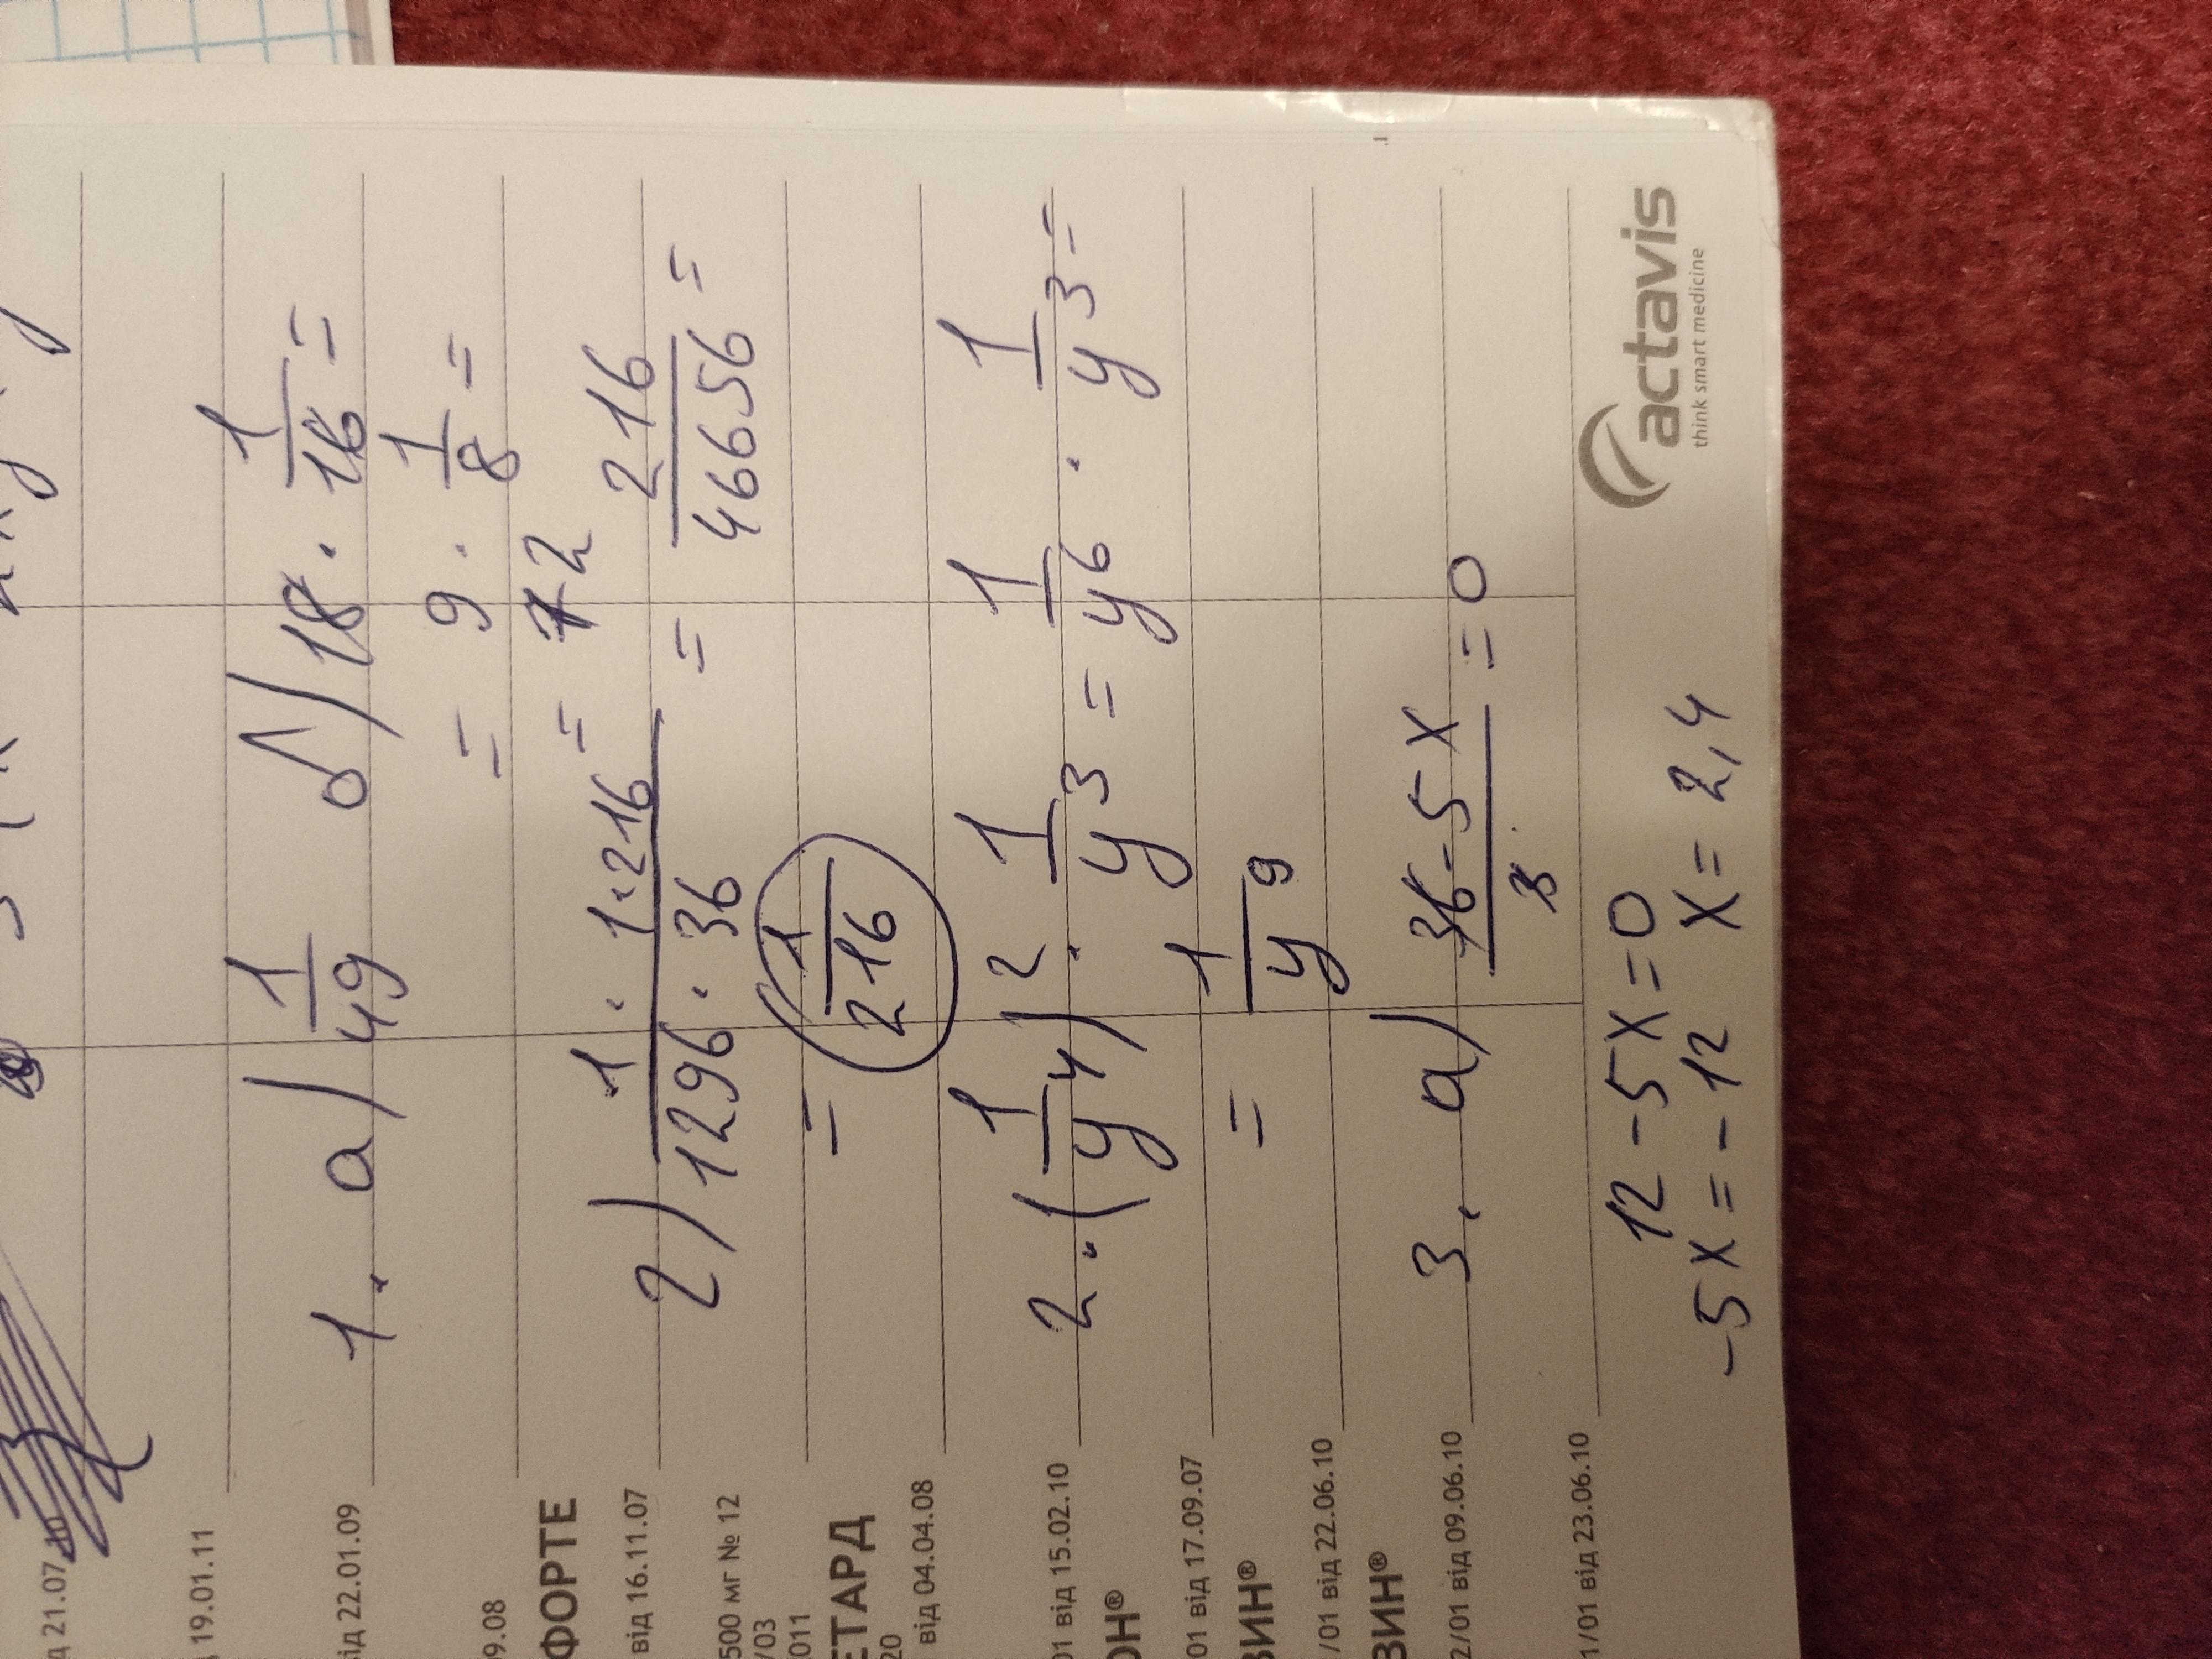 1. а) 1/49 б) 18 · 1/16 =
= 9 · 1/8 =
= 72
2) 1 · 1·216 / 1296 · 36 = 216/46656 =
= 1/216
2. (1/y⁴)² · 1/y³ = 1/y⁶ · 1/y³ =
= 1/y⁹
3. а) 36-5x/3 = 0
12-5x=0
-5x=-12 x=2,4
д 21.07
19.01.11
від 22.01.09
09.08
ФОРТЕ
від 16.11.07
500 мг № 12
/03
011
ЕТАРД
20
від 04.04.08
01 від 15.02.10
ОН®
01 від 17.09.07
ВИН®
/01 від 22.06.10
ВИН®
2/01 від 09.06.10
1/01 від 23.06.10
actavis
think smart medicine